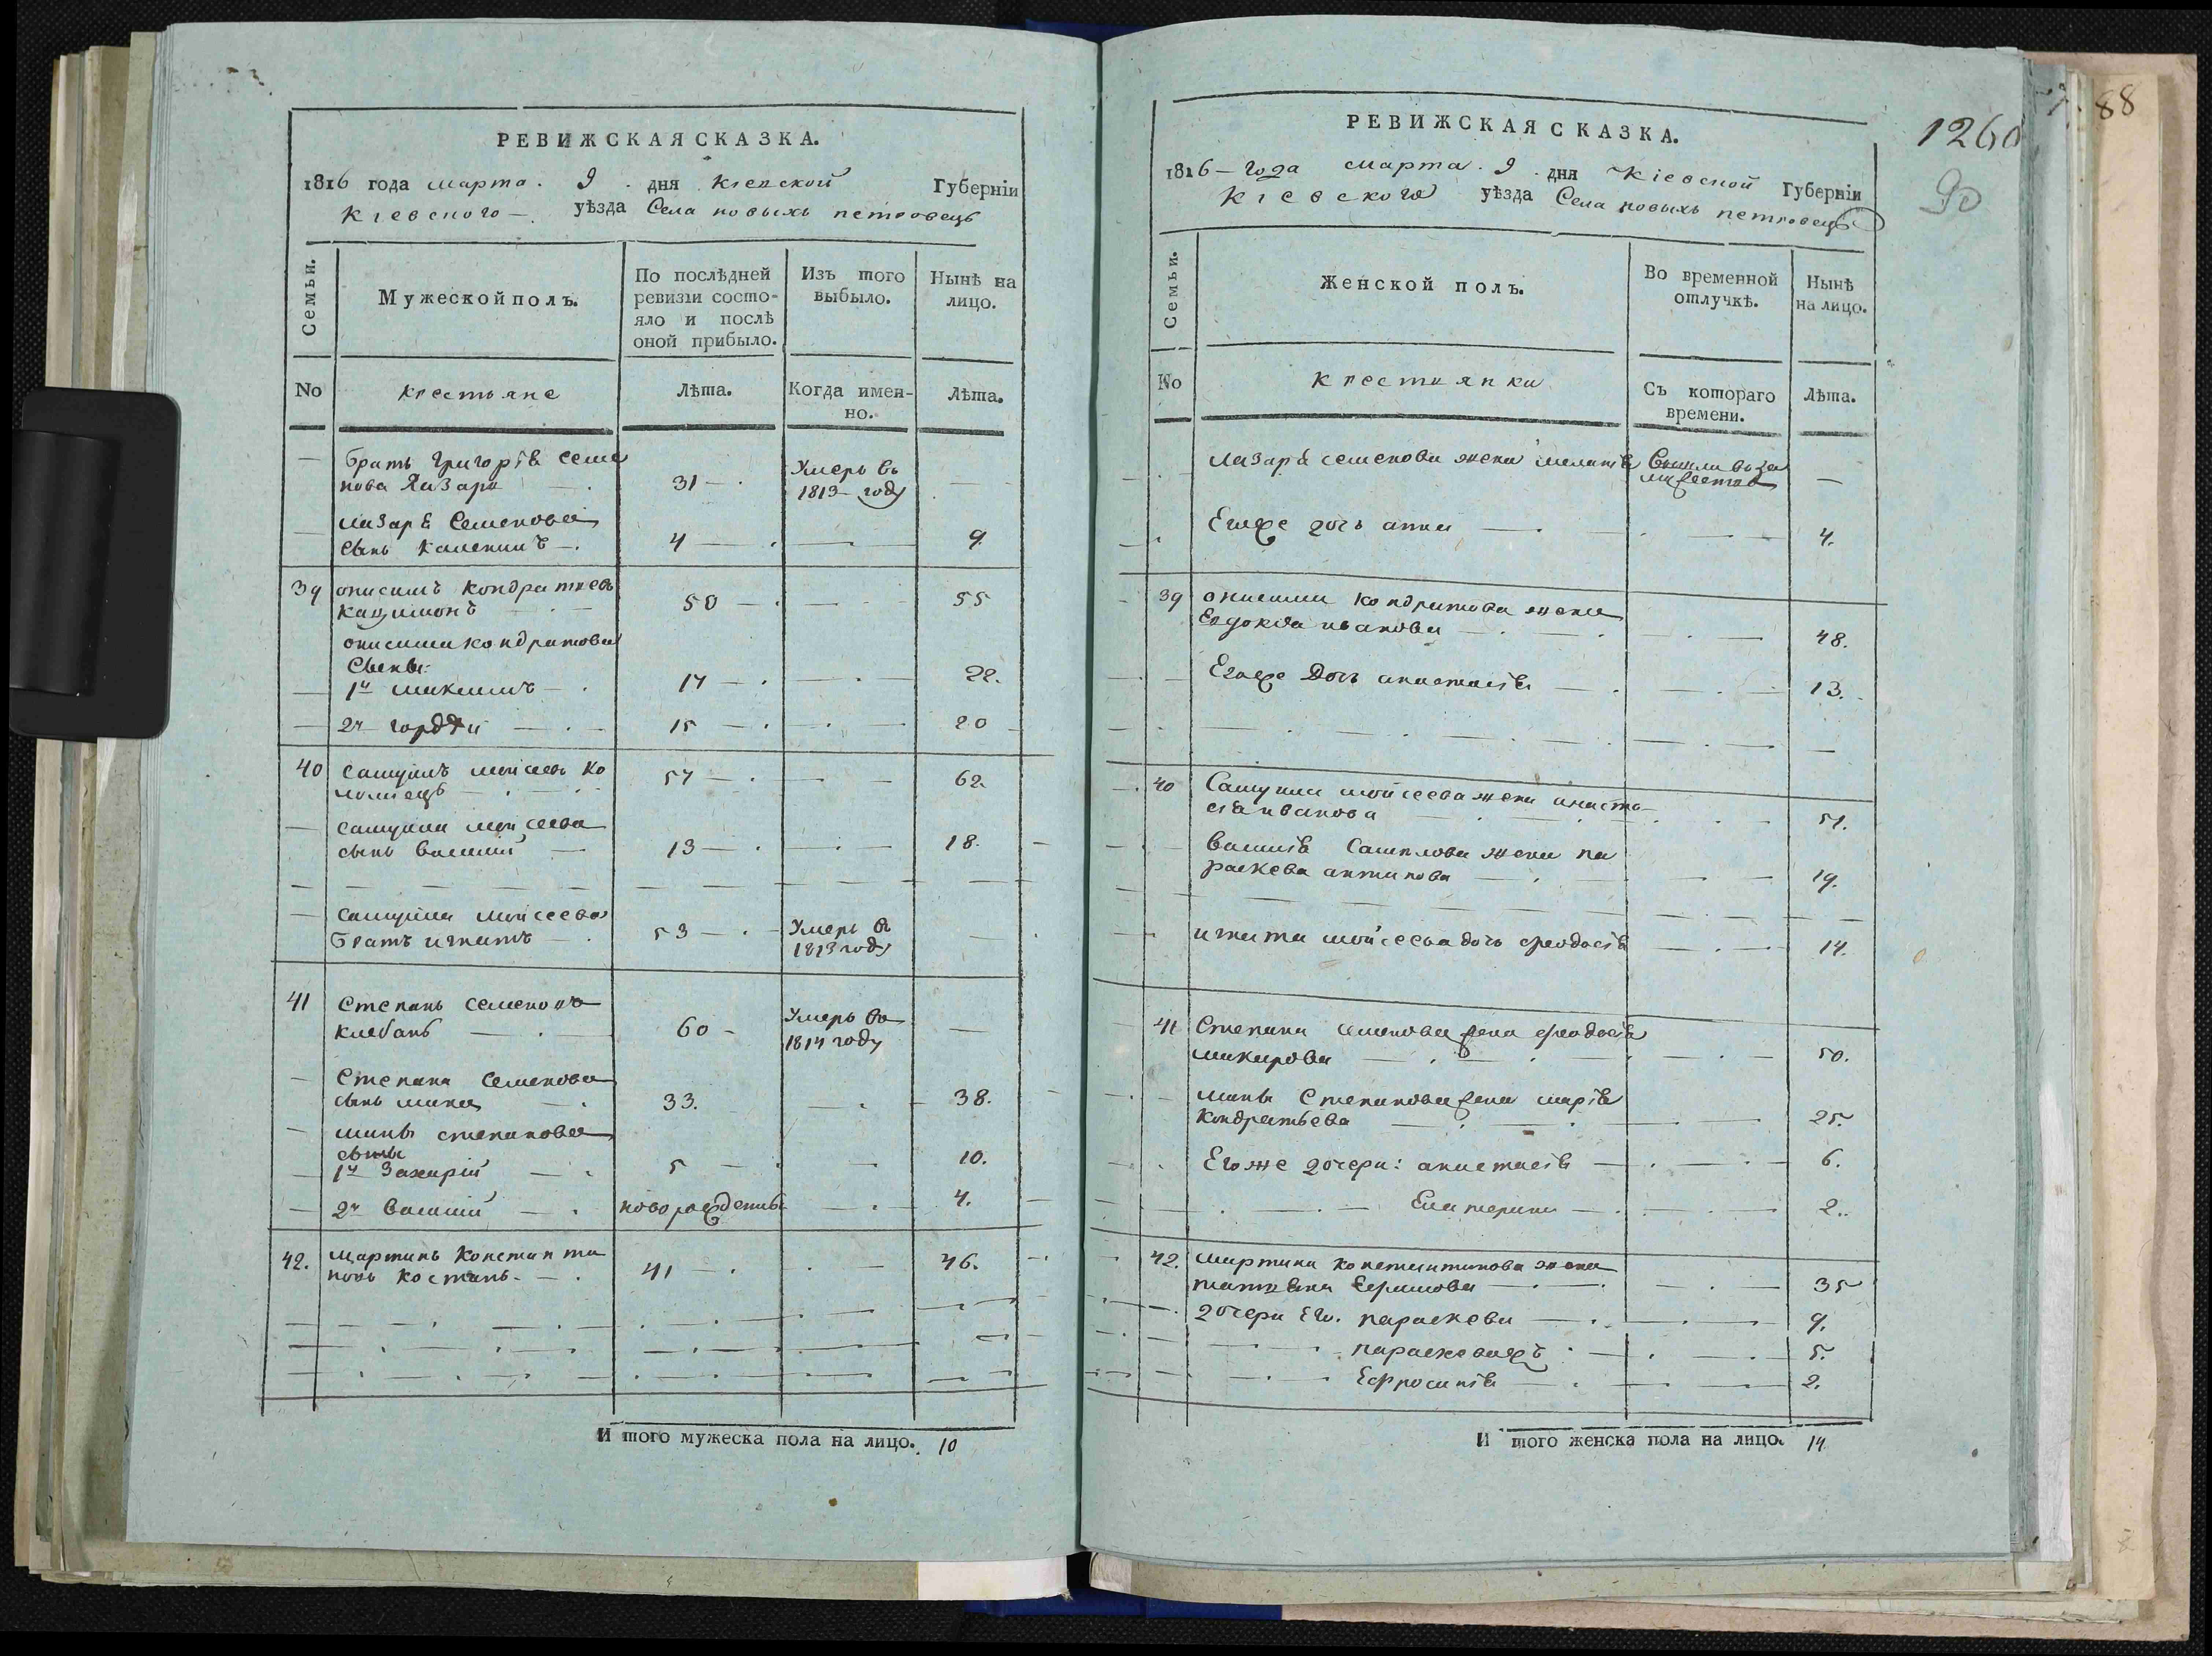 РЕВИЖСКАЯ СКАЗКА.
1816 года марта 9 дня Кіевской Губерніи
Кіевского уѣзда Села новыхъ петровецъ
Семьи.
Мужеской полъ.
По послѣдней ревизіи состояло и послѣ оной прибыло.
Изъ того выбыло.
Нынѣ на лицо.
No
крестьяне
Лѣта.
Когда именно.
Лѣта.
братъ григорія семе
нова Лазарь 31 Умеръ въ 1813 году
Лазаря Семенова
сынъ каленикъ 4 9
39 онисимъ кондратіевъ
50 55
онисима кондратова
сыны:
1й максимъ 17 22.
2й гордѣй 15 20
40 самуилъ моисеевъ ко
ломіецъ 57 62.
самуила моисеева
сынъ василій 13 18.
самуила моисеева
братъ игнатъ 53 Умеръ въ 1813 году
41 Степанъ семеновъ
клебанъ 60 Умеръ въ 1814 году
Степана семенова
сынъ мина 33. 38.
мины степанова
сыны
1й Захарій 5 10.
2й василій новорожденный 4.
42. мартинъ константи
новъ костанъ 41 46.
И того мужеска пола на лицо. 10
РЕВИЖСКАЯ СКАЗКА.
1816 года марта 9 дня Кіевской Губерніи
Кіевского уѣзда Села новыхъ петровецъ
1260
90
88
Семьи.
Женской полъ.
Во временной отлучкѣ.
Нынѣ на лицо.
No
крестьянки
Съ котораго времени.
Лѣта.
Лазаря семенова жена меланія
Егоже дочь анна 4.
39 онисима кондратова жена
Евдокія иванова 48.
Егоже Дочь анастасія 13.
40 Самуила моисеева жена анаста
сія иванова 51.
василія самилова жена па
раскева антипова 19.
игната моисеева дочь феодосія 14.
41 Степана семенова жена феодосія
макарова 50.
мины Степанова жена марія
кондратьева 25.
Егоже дочери: анастасія 6.
Екатерина 2.
42. мартина константинова жена
татіяна Ефимова 35
дочери Его. параскева 9.
5.
Ефросинія 2.
И того женска пола на лицо. 14